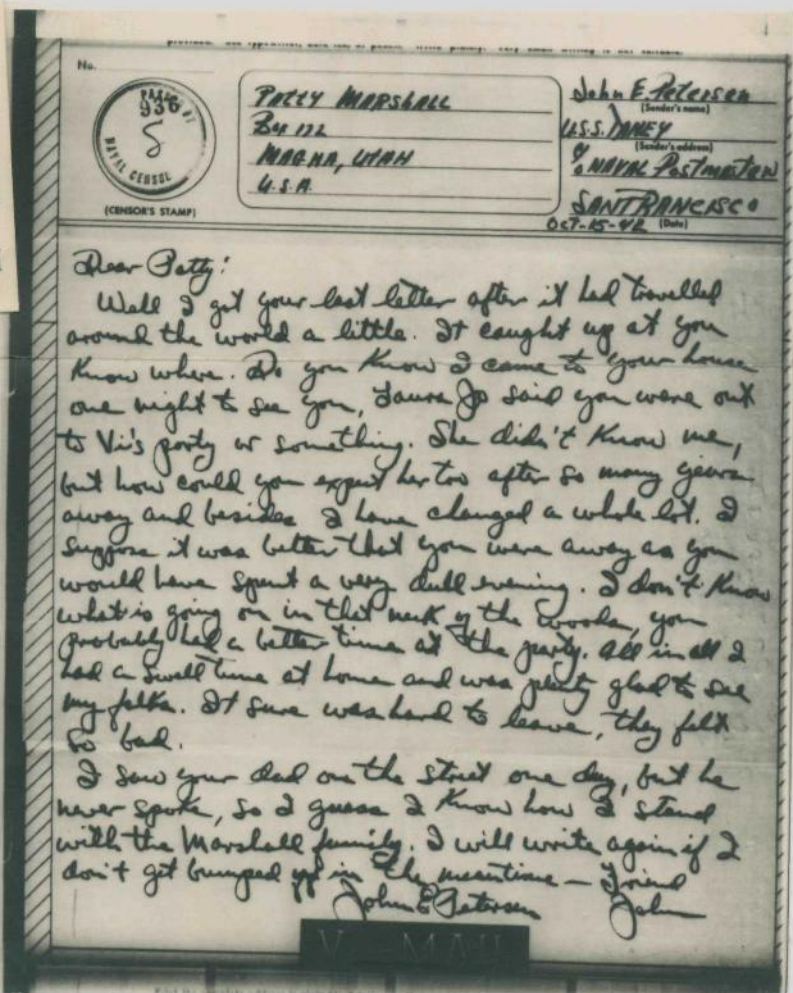 No.
PASSED BY
936
NAVAL CENSOR
(CENSOR'S STAMP)
PATTY MARSHALL
Box 122
MAGNA, UTAH
U.S.A.
John E. Petersen
(Sender's name)
U.S.S. TANEY
(Sender's address)
c/o NAVAL Postmaster
SAN FRANCISCO
OCT-15-42 (Date)
Dear Patty:
Well I got your last letter after it had travelled
around the world a little. It caught up at you
know where. Do you know I came to your house
one night to see you, Laura Jo said you were out
to Vi's party or something. She didn't know me,
but how could you expect her too after so many years
away and besides I have changed a whole lot. I
suppose it was better that you were away as you
would have spent a very dull evening. I don't know
what is going on in that neck of the woods, you
probably had a better time at the party. All in all I
had a swell time at home and was plenty glad to see
my folks. It sure was hard to leave, they felt
so bad.
I saw your dad on the street one day, but he
never spoke, so I guess I know how I stand
with the Marshall family. I will write again if I
don't get bumped off in the meantime — Friend
John E Petersen John
V - MAIL